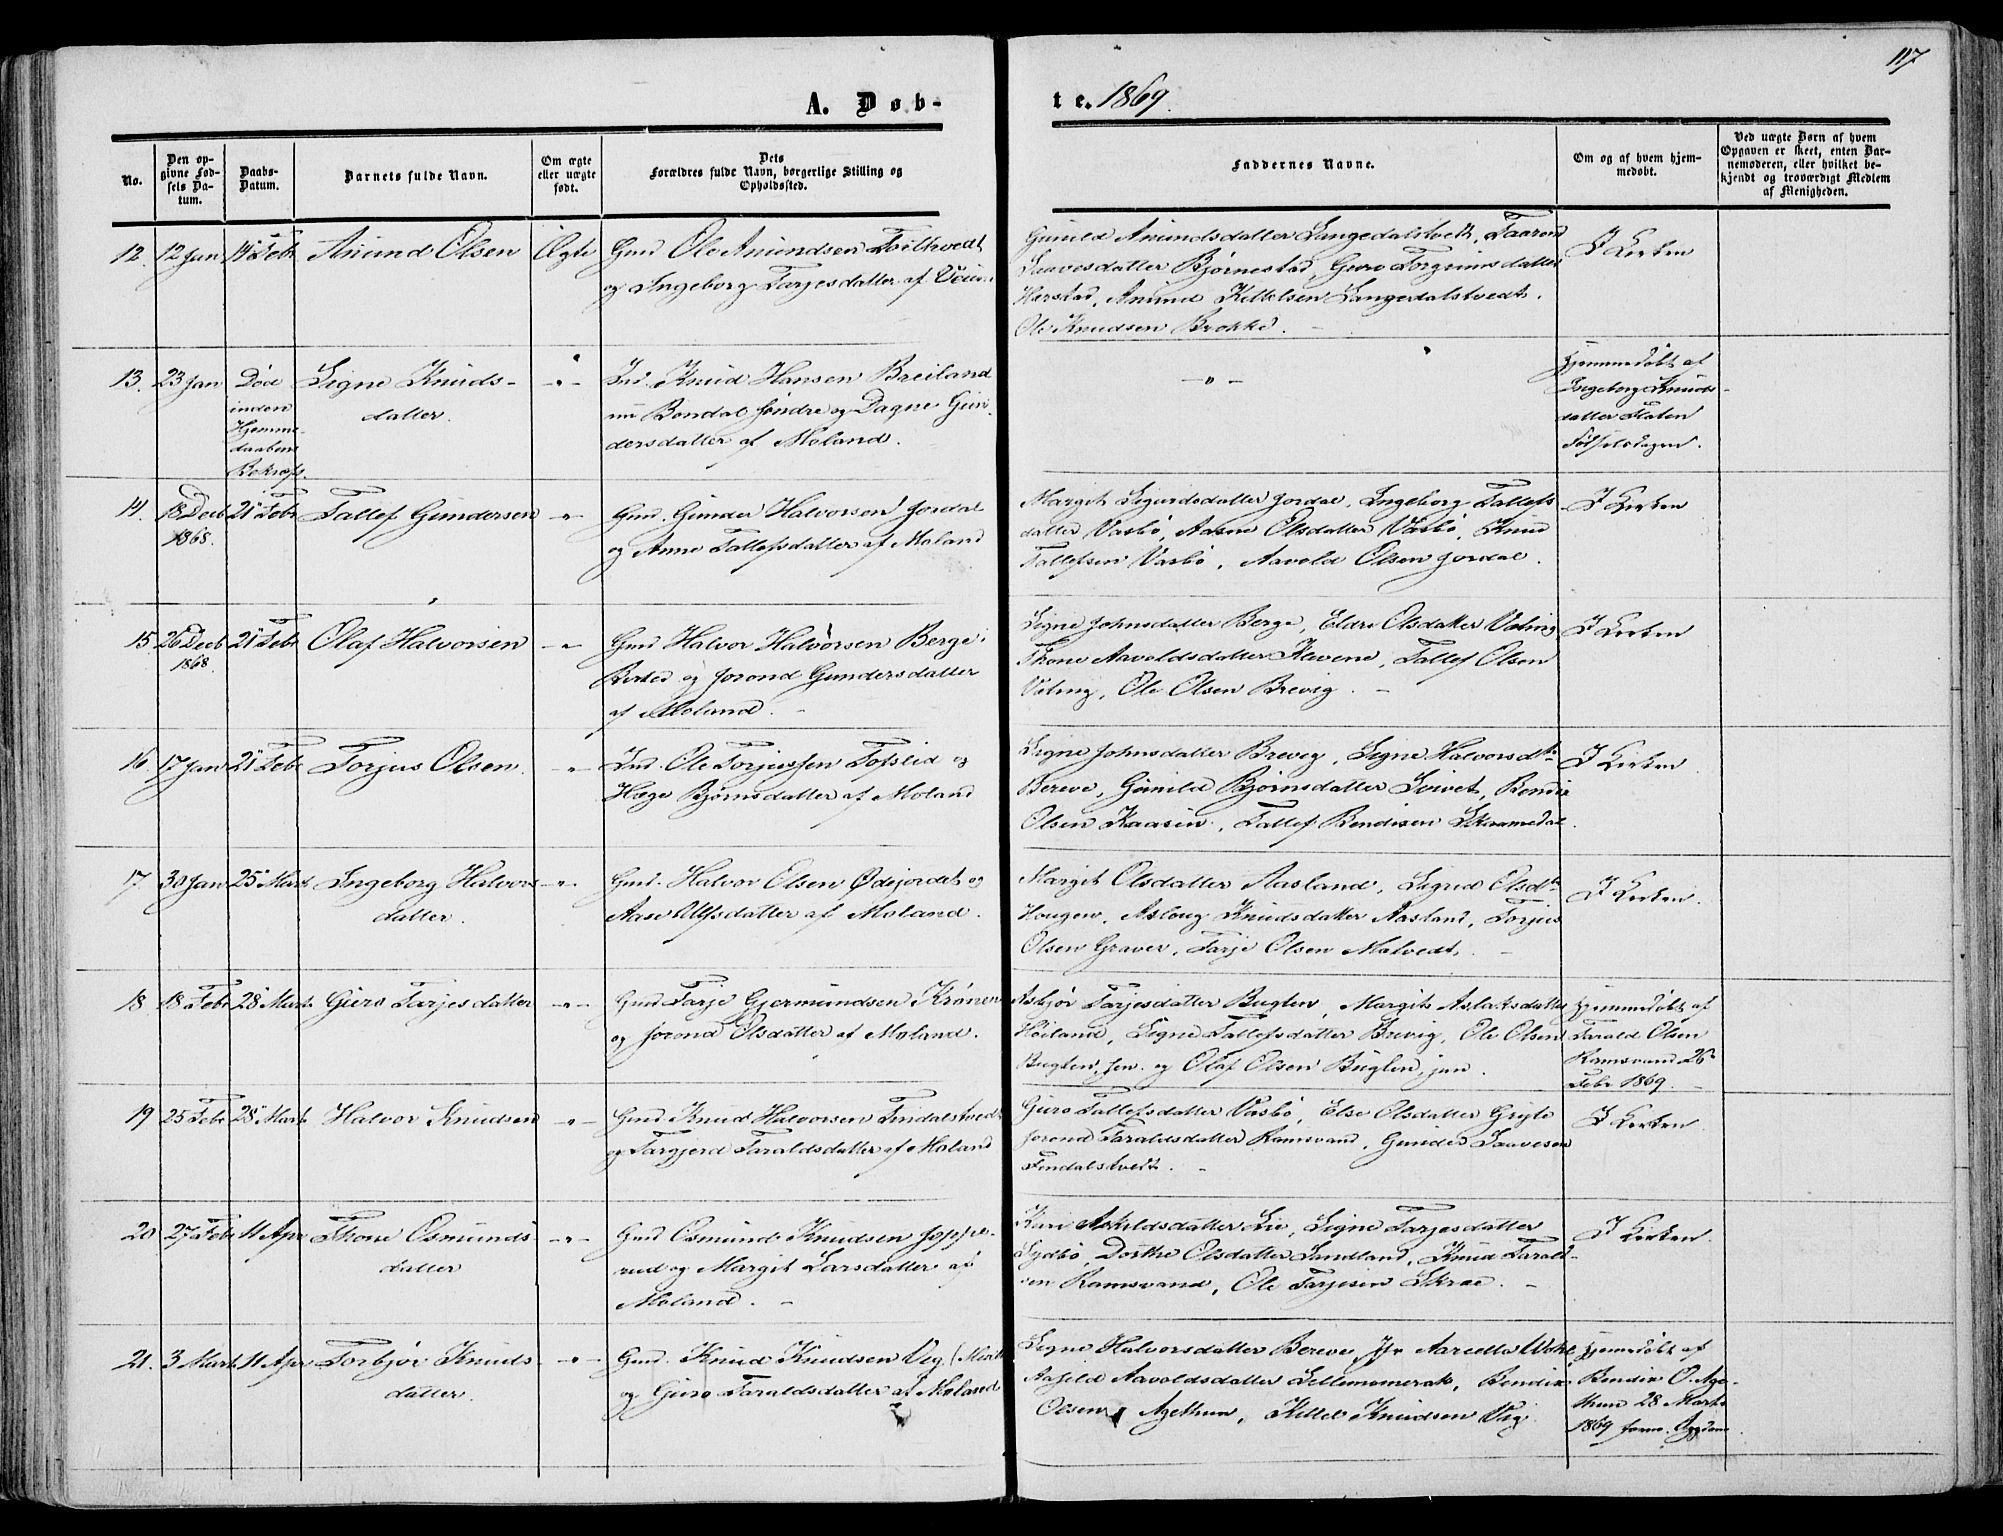 117
A. Døb-
te. 1869.
No.
Den op-
givne Fød-
sels Da-
tum.
Daabs-
Datum.
Barnets fulde Navn.
Om ægte
eller uægte
født.
Dets
Forældres fulde Navn, borgerlige Stilling og
Opholdssted.
Faddernes Navne.
Om og af hvem hjem-
medøbt.
Ved uægte Børn af hvem
Opgaven er skeet, enten Bar-
nemoderen, eller hvilket be-
kjendt og troværdigt Medlem
af Menigheden.
12. 12 Jan 14 Febr Anund Olsen Ægte Gmd Ole Anundsen
og Ingeborg Tarjesdatter af
Gunild Anundsdatter Langedalstvedt,
Saavesdatter Bjørnestad, Guro Torgrimsdatter
Harstad, Anund Kittelsen Langedalstvedt.
Ole Knudsen Brokke. -
I Kirken
13. 23 Jan Død Signe Knuds- -"- Ind. Knud Hansen Breiland
inden datter. nu Bondal søndre og Dagne Gun-
Hjemme- dersdatter af Moland.
daabens
Bekræft.
-"-
Hjemmedøbt af
Ingeborg Knuds-
datter Flaten
Fødselsdagen.
14. 18 Decb 21 Febr Tallef Gundersen -"- Gmd. Gunder Halvorsen Jordal
1868. og Anne Tallefsdatter af Moland
Margit Sigurdsdatter Jordal, Ingeborg Tallefs
datter Vasbø, Aasne Olsdatter Vasbø, Knud
Tallefsen Vasbø, Aavold Olsen Jordal.
I Kirken
15 26 Decb 21 Febr Olaf Halvorsen -"- Gmd Halvor Halvorsen Berge i
1868. og Jorond Gundersdatter
af Moland. -
Signe Johnsdatter Berge, Eldri Olsdatter
Thone Aavoldsdatter Klevene, Tallef Olsen
Ole Olsen Brevig. -
I Kirken
16 17 Jan 21 Febr Torjus Olsen. -"- Ind. Ole Torjussen Tofslid og
Hæge Bjørnsdatter af Moland
Signe Johnsdatter Brevig, Signe Halvorsdtr
Bereve, Gunild Bjørnsdatter, Bendix
Olsen Kaasen, Tallef Bendixen
I Kirken
17. 30 Jan 25 Marts Ingeborg Halvors -"- Gmd. Halvor Olsen Ødejordet og
datter. Aase Ulfsdatter af Moland.
Margit Olsdatter Aasland, Sigrid Olsdtr
Hougen, Aslaug Knudsdatter Aasland, Torjus
Olsen Graver, Tarje Olsen Malvedt. -
I Kirken.
18 18 Febr 28 Marts Guro Tarjesdatter -"- Gmd Tarje Gjermundsen Krånen
og Jorond Olsdatter af Moland.
Asbjør Tarjesdatter Buglen, Margit Aslaksdatter
Høiland, Signe Tallefsdatter Brevig, Ole Olsen
Buglen, sen. og Olaf Olsen Buglen, jun.
Hjemmedøbt af
Tarald Olsen
Ramsvand 26
Febr 1869. -
19 25 Febr 28 Marts Halvor Knudsen -"- Gmd. Knud Halvorsen Findalstvedt
og Targjerd Taraldsdatter af Moland
Guro Tallefsdatter Vasbø, Else Olsdatter Gryte
Jorond Taraldsdatter Ramsvand, Gunder Saavesen
Findalstvedt. -
I Kirken
20 27 Febr 11 Apr Thone Osmunds -"- Gmd Osmund Knudsen Jeppe-
datter rud og Margit Larsdatter af
Moland. -
Kari Askildsdatter Lie, Signe Tarjesdatter
Sydbø, Dorthe Olsdatter Sandland, Knud Tarald-
sen Ramsvand, Ole Tarjesen Skree. -
I Kirken.
21. 3 Marts 11 Apr Torbjør Knuds -"- Gmd. Knud Knudsen Veg
datter. og Guro Taraldsdatter af Moland
Signe Halvorsdatter Bereve, Jfr
Aasild Aavoldsdatter, Bendix
Olsen Agethun, Kittel Knudsen Veg
Hjemmedøbt af
Bendix O. Age-
thun 28 Marts
1869